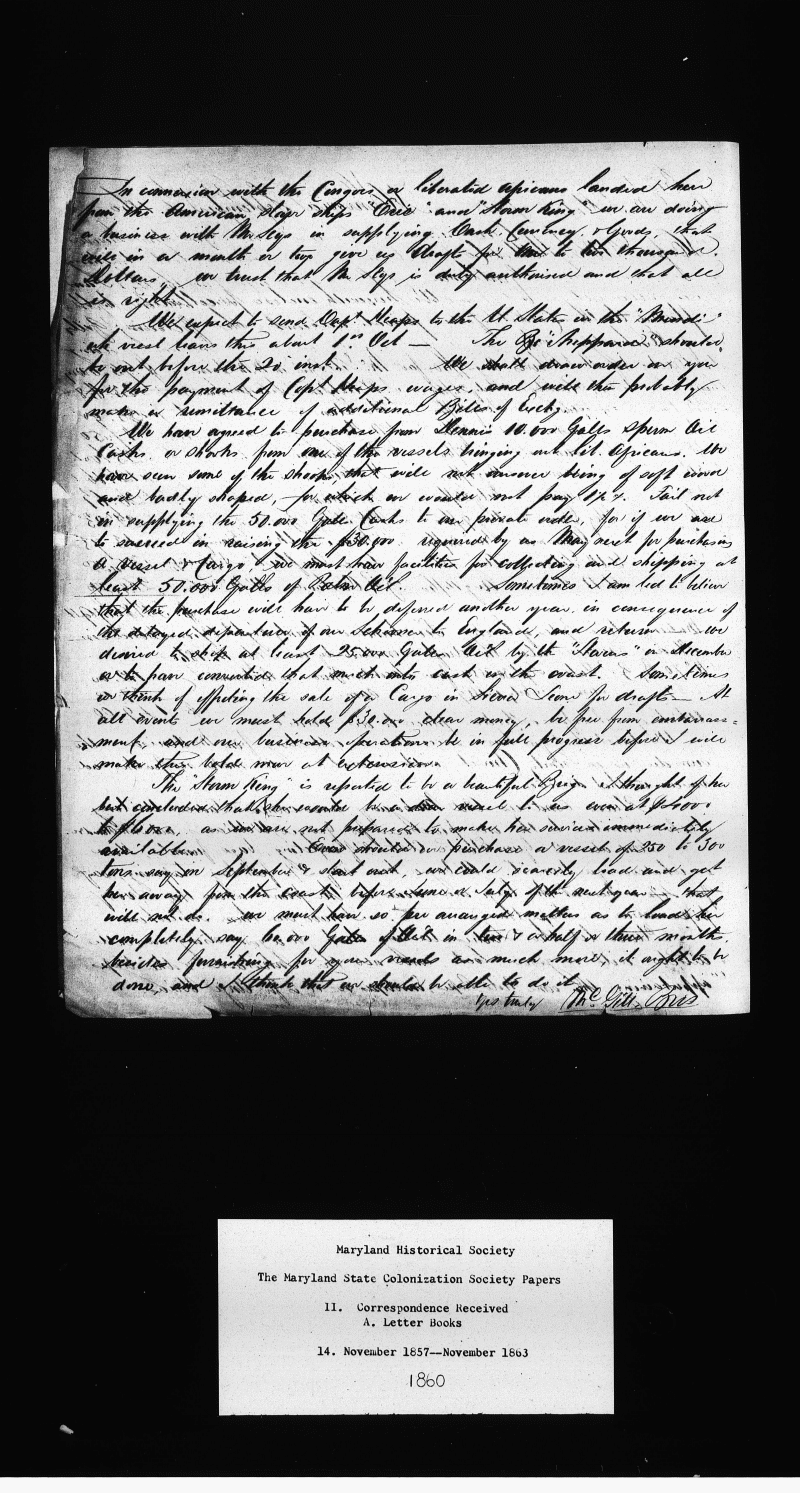 In connexion with the Congoes or liberated africans landed here
from the American slave ships "Erie" and "Storm King" we are doing
a business with Mr Seys in supplying Cash, Currency, & Goods, that
will in a month or two give us drafts for to ten thousand
Dollars, we trust that Mr Seys is duly authorised and that all
is right.
We expect to send Capt Heaps to the U States in the "Mendi"
wh vessel leaves this about 1st Oct — The "Shepparde" should
be out before the 20 inst. We shall draw order on you
for the payment of Capt Heaps wages, and will then probably
make a remittance of additional Bills of Exchg.
We have agreed to purchase from Dennis 10.000 Galls Sperm Oil
Casks or shooks from one of the vessels bringing out lib Africans. We
have seen some of the shooks that will not answer being of soft wood
and badly shaped, for which we would not pay Fail not
in supplying the 50.000 Galls Casks to our private order, for if we are
to succeed in raising the $30.000 required by us May next for purchasing
a vessel & Cargo, we must have facilities for collecting and shipping at
least 50.000 Galls of Palm Oil. Sometimes I am led to believe
that the purchase will have to be defered another year, in consequence of
the delayed departure of our Schooner to England, and return — we
desired to ship at least 25.000 Galls Oil by the "Stevens" in December
or to have converted that much into cash on the coast. Sometimes
we think of effecting the sale of a Cargo in Sierra Leone for drafts — At
all events we must hold $30.000 clear money, be free from embarrass=
ment, and our business operations be in full progress before I will
make this bold move at extension.
The "Storm King" is reported to be a beautiful Brig. I thought of her
but concluded that she would be a dear vessel to us even at $6000
to $8000, as we are not prepared to make her services immediately
available. Even should we purchase a vessel of 250 to 300
tons say in September & start out, we could scarcely load and get
her away from the coast before June or July of the next year — that
will not do. we must have so pre arranged matters as to load her
completely, say 60.000 Galls of Oil in two & a half or three months.
besides furnishing for your vessels as much more, it ought to be
done, and I think that we should be able to do it
Yrs truly McGill Bros
Maryland Historical Society
The Maryland State Colonization Society Papers
11. Correspondence Received
A. Letter Books
14. November 1857--November 1863
1860